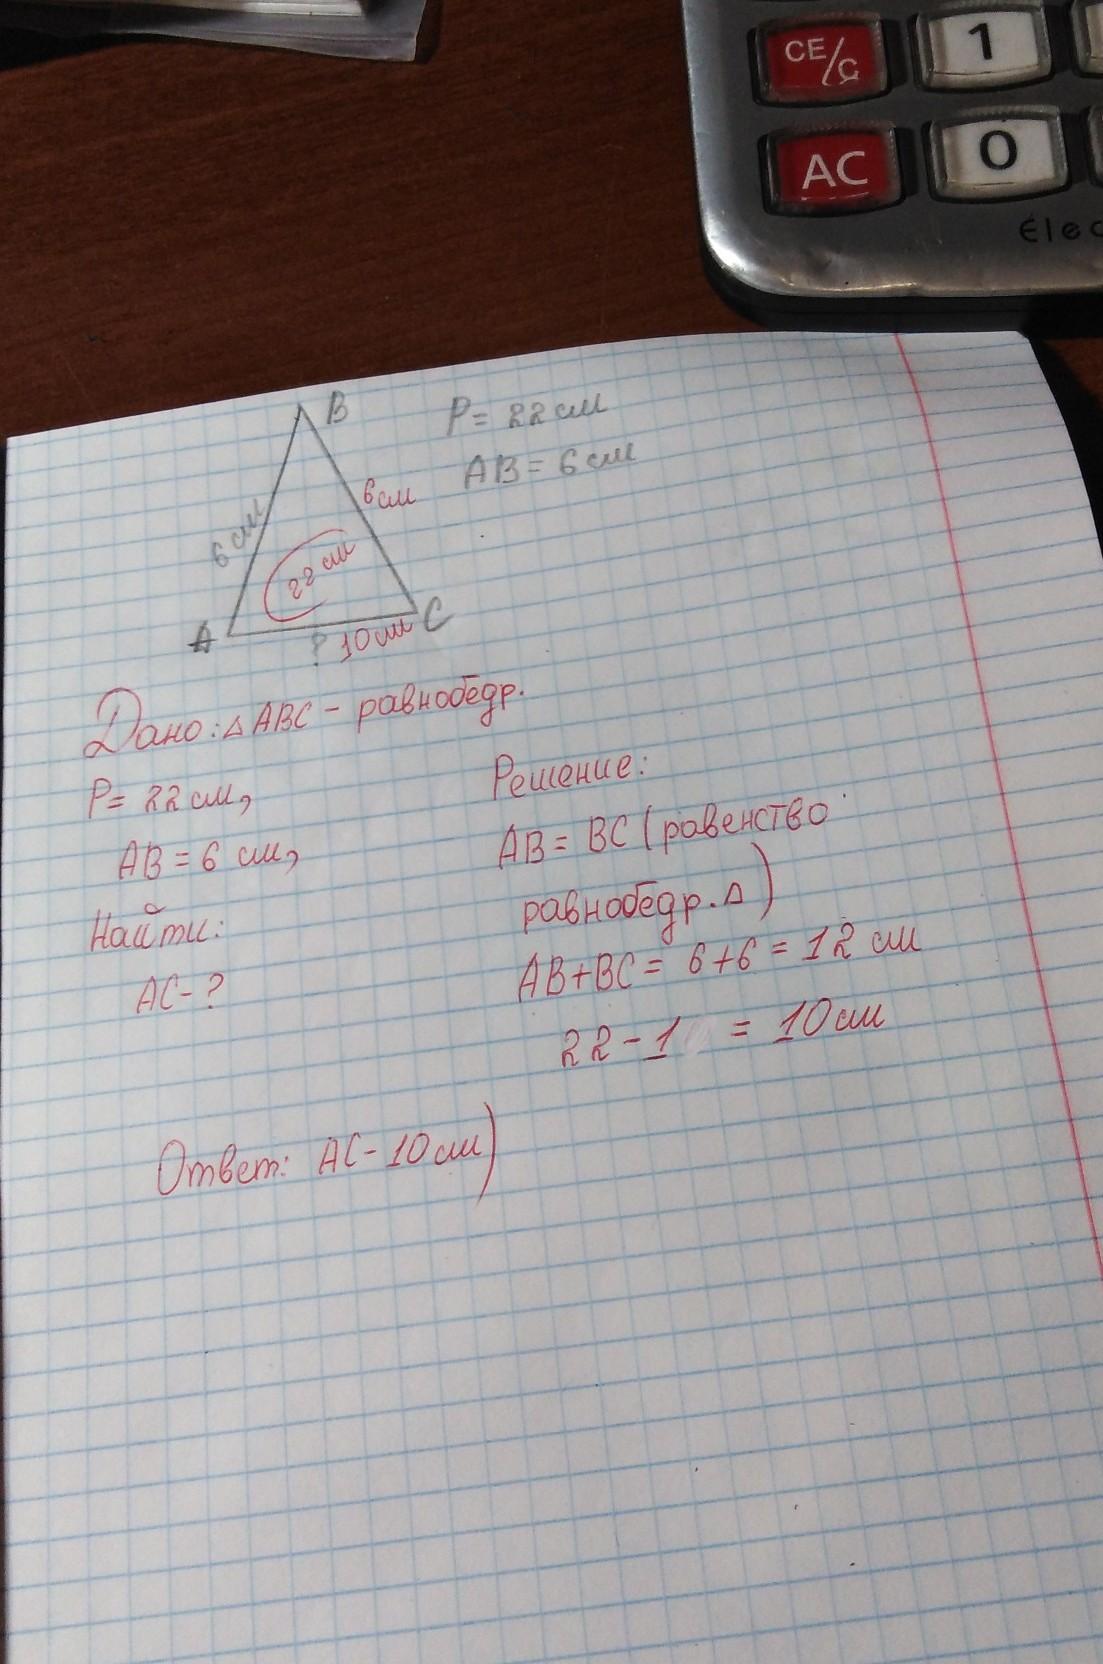 CE/C
1
AC
0
Elec
B
P= 22 см
AB = 6 см
6 см
6 см
22 см
A
C
?
10 см
Дано: △ ABC - равнобедр.
P= 22 см,
AB = 6 см,
Найти:
AC- ?
Решение:
AB = BC (равенство
равнобедр. △)
AB+BC = 6+6 = 12 см
22 - 1 = 10 см
Ответ: AC - 10 см)